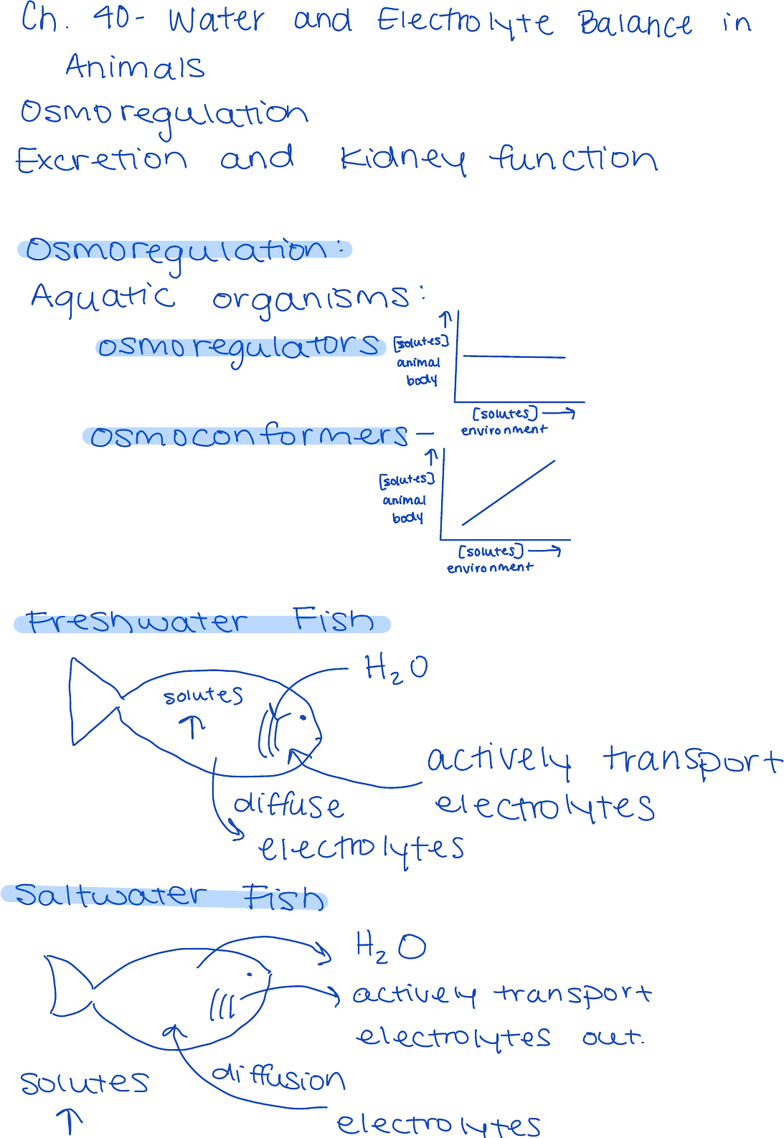 Ch. 40- Water and Electrolyte Balance in
Animals
Osmoregulation
Excretion and kidney function
Osmoregulation:
Aquatic organisms:
osmoregulators
↑
[solutes]
animal
body
[solutes] →
environment
osmoconformers –
↑
[solutes]
animal
body
[solutes] →
environment
Freshwater Fish
H₂O
solutes
↑
actively transport
electrolytes
diffuse
electrolytes
Saltwater Fish
H₂O
actively transport
electrolytes out.
diffusion
solutes
↑
electrolytes